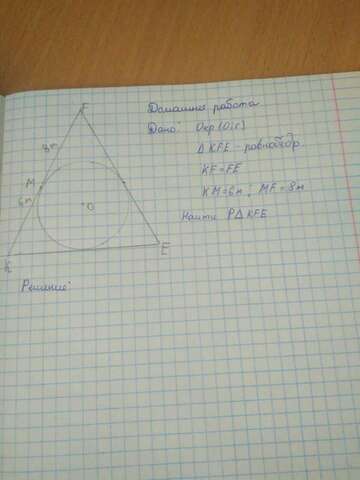 Домашняя работа
Дано: Окр (O; r)
Δ KFE - равнобедр
KF = FE
KM = 6м; MF = 8м
Найти PΔ KFE
F
8м
M
6м
O
K
E
Решение: